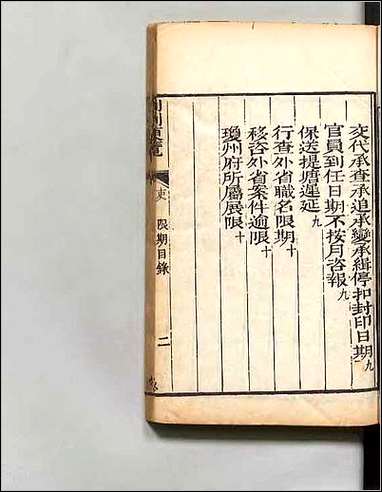 交代承查承追承變承緝停扣封印日期九
官員到任日期不按月咨報九
保送提塘遲延九
行查外省職名限期十
移咨外省案件逾限十
瓊州府所屬展限十
吏 限期目錄 二